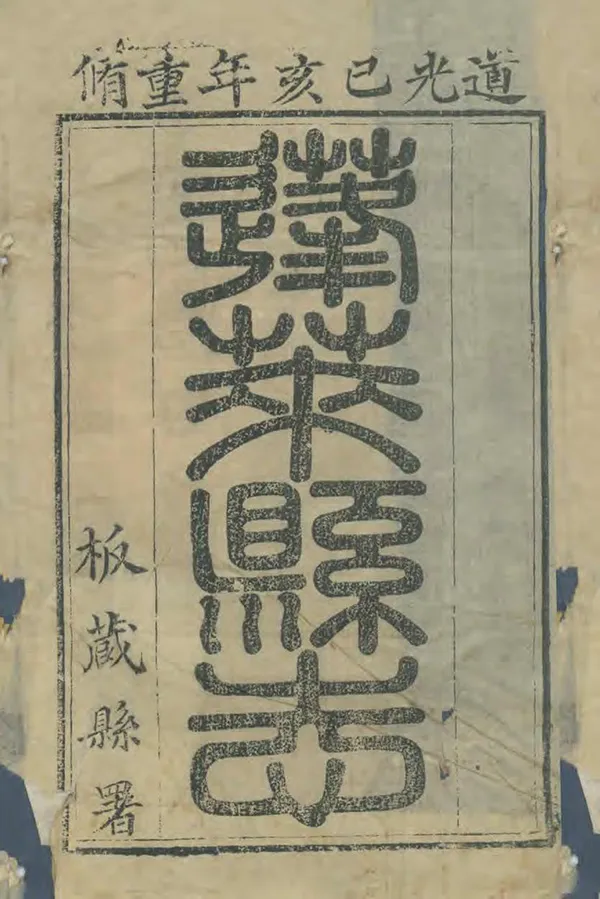 道光己亥年重脩
蓬萊縣志
板蔵縣署